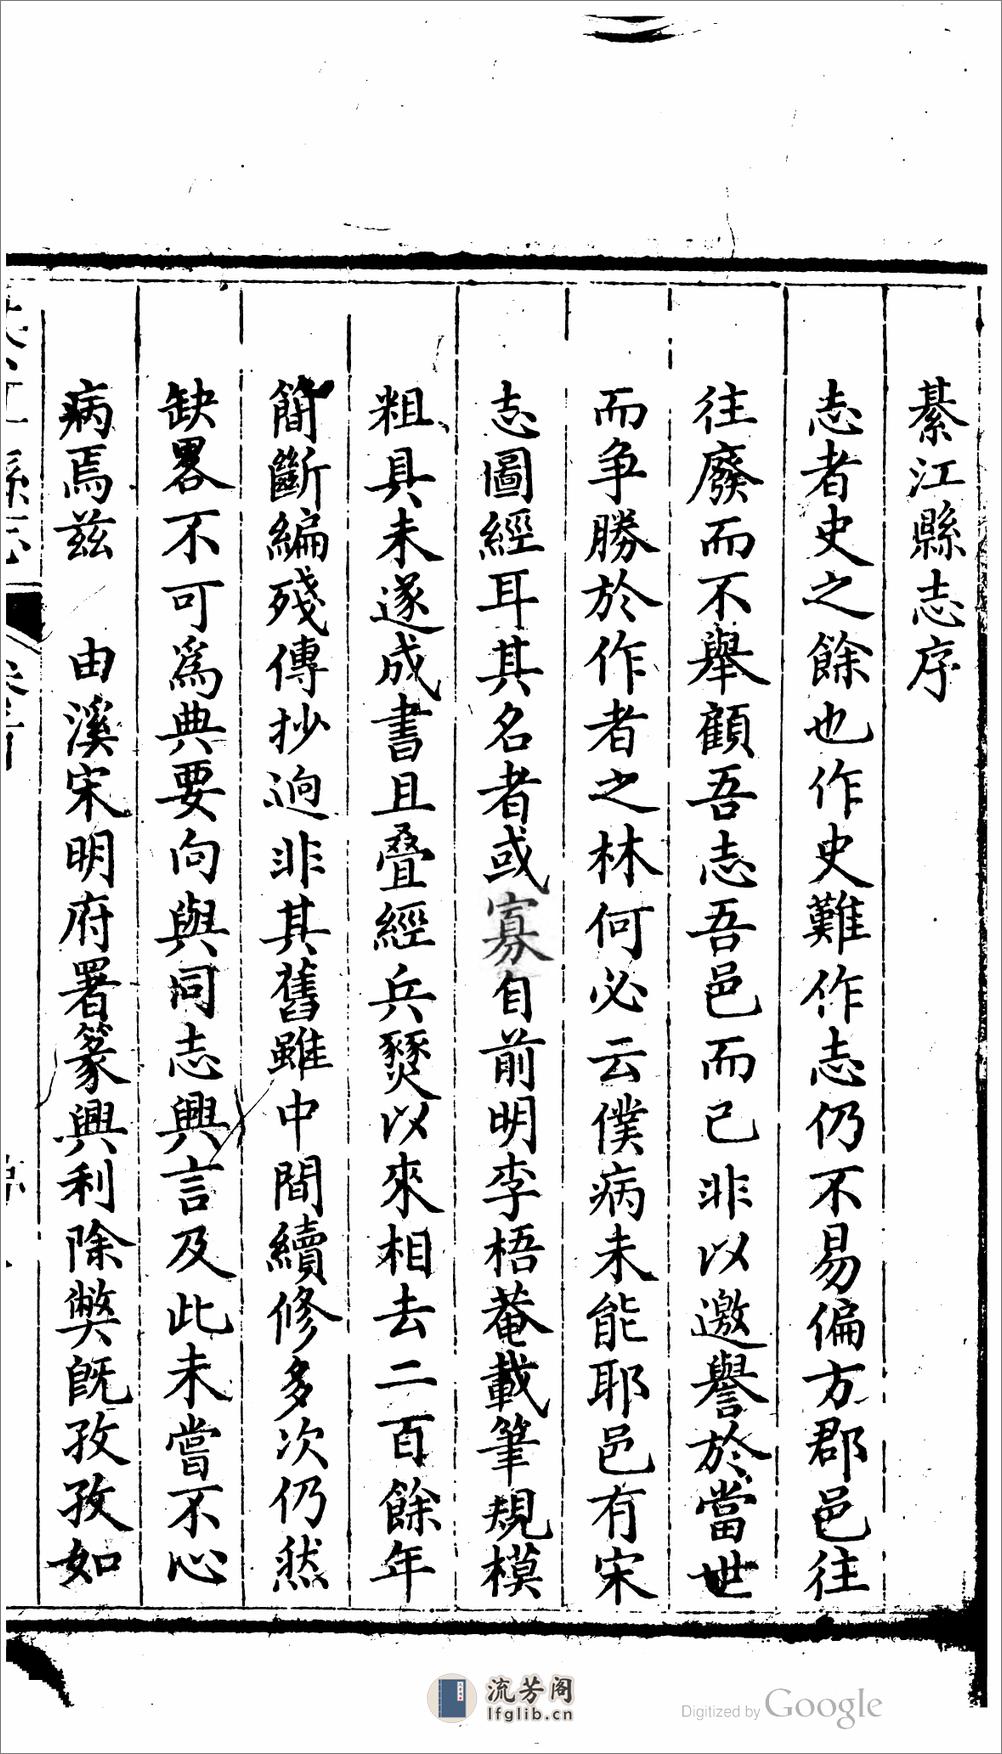 綦江縣志序
志者史之餘也作史難作志仍不易偏方郡邑往
往廢而不舉顧吾志吾邑而已非以邀譽於當世
而争勝於作者之林何必云僕病未能耶邑有宋
志圖經耳其名者或寡自前明李梧菴載筆規模
粗具未遂成書且疊經兵燹以來相去二百餘年
簡斷編殘傳抄逈非其舊雖中間續修多次仍然
缺畧不可為典要向與同志興言及此未嘗不心
病焉兹 由溪宋明府署篆興利除弊旣孜孜如
流芳阁
lfglib.cn
Digitized by Google